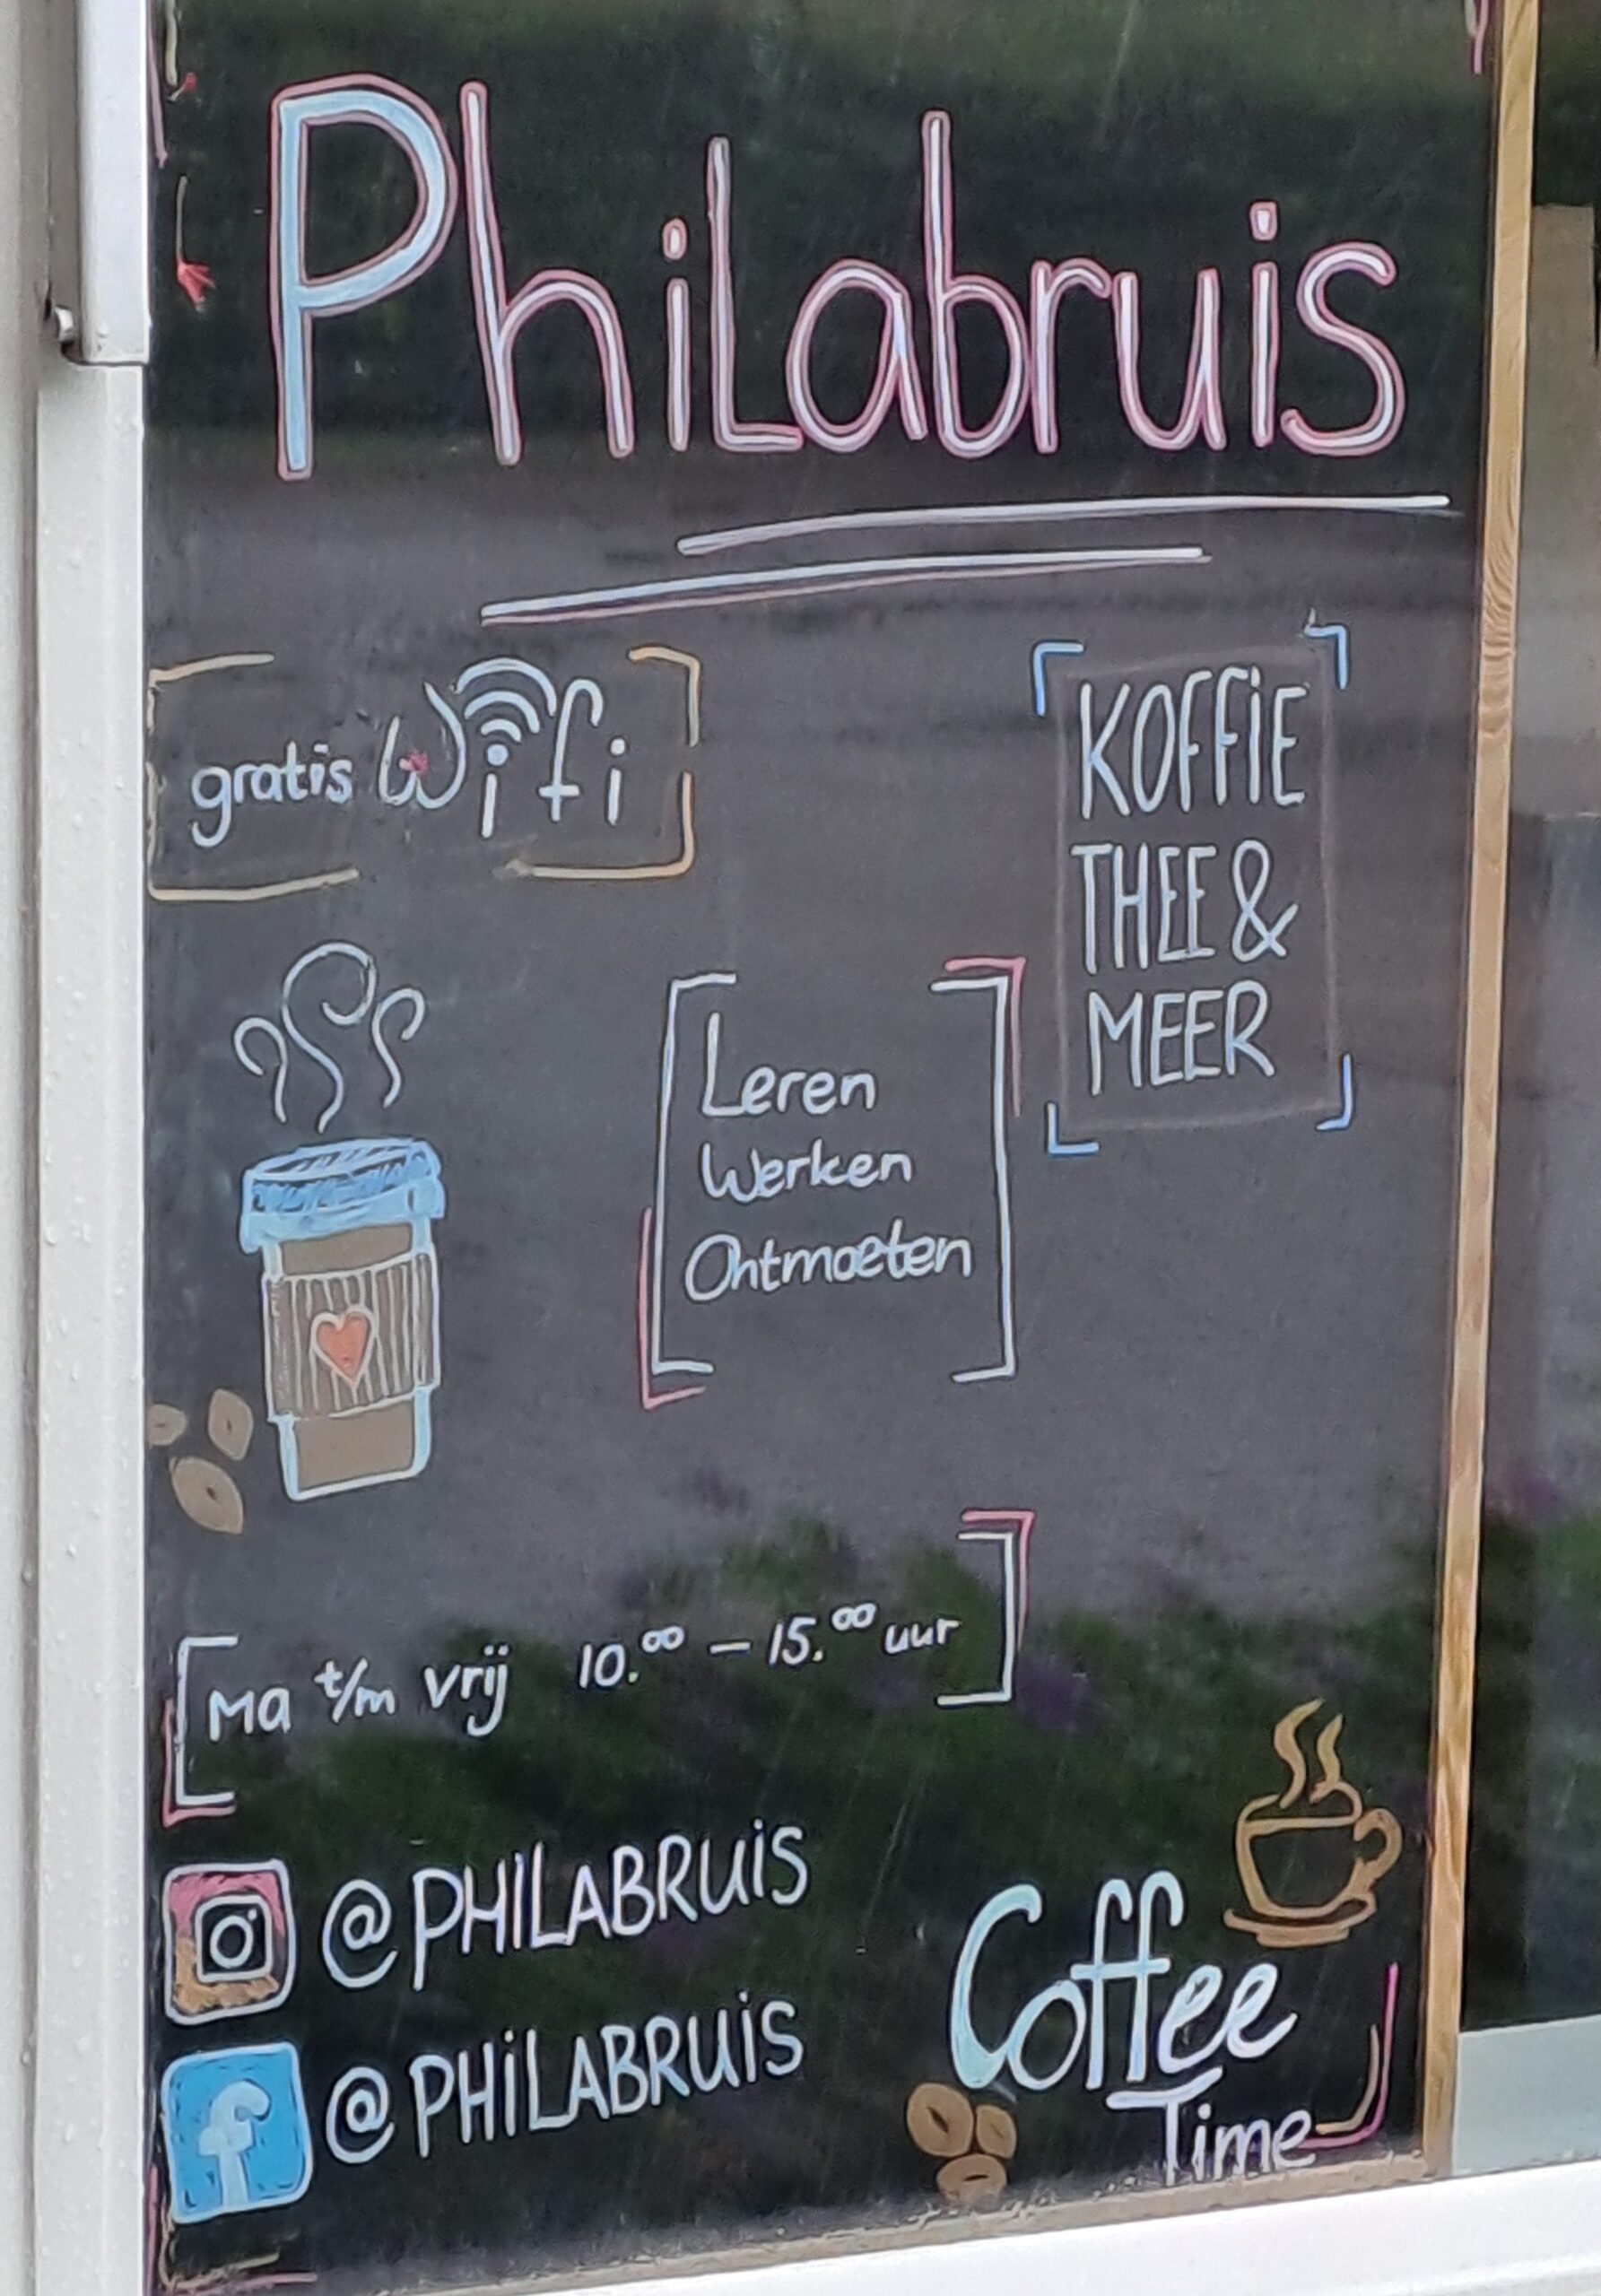 PhiLabruis
gratis Wifi
KOFFiE
THEE &
MEER
Leren
Werken
Ontmoeten
Ma t/m vrij 10.00 – 15.00 uur
@PHILABRUiS
@PHiLABRUiS
Coffee
Time